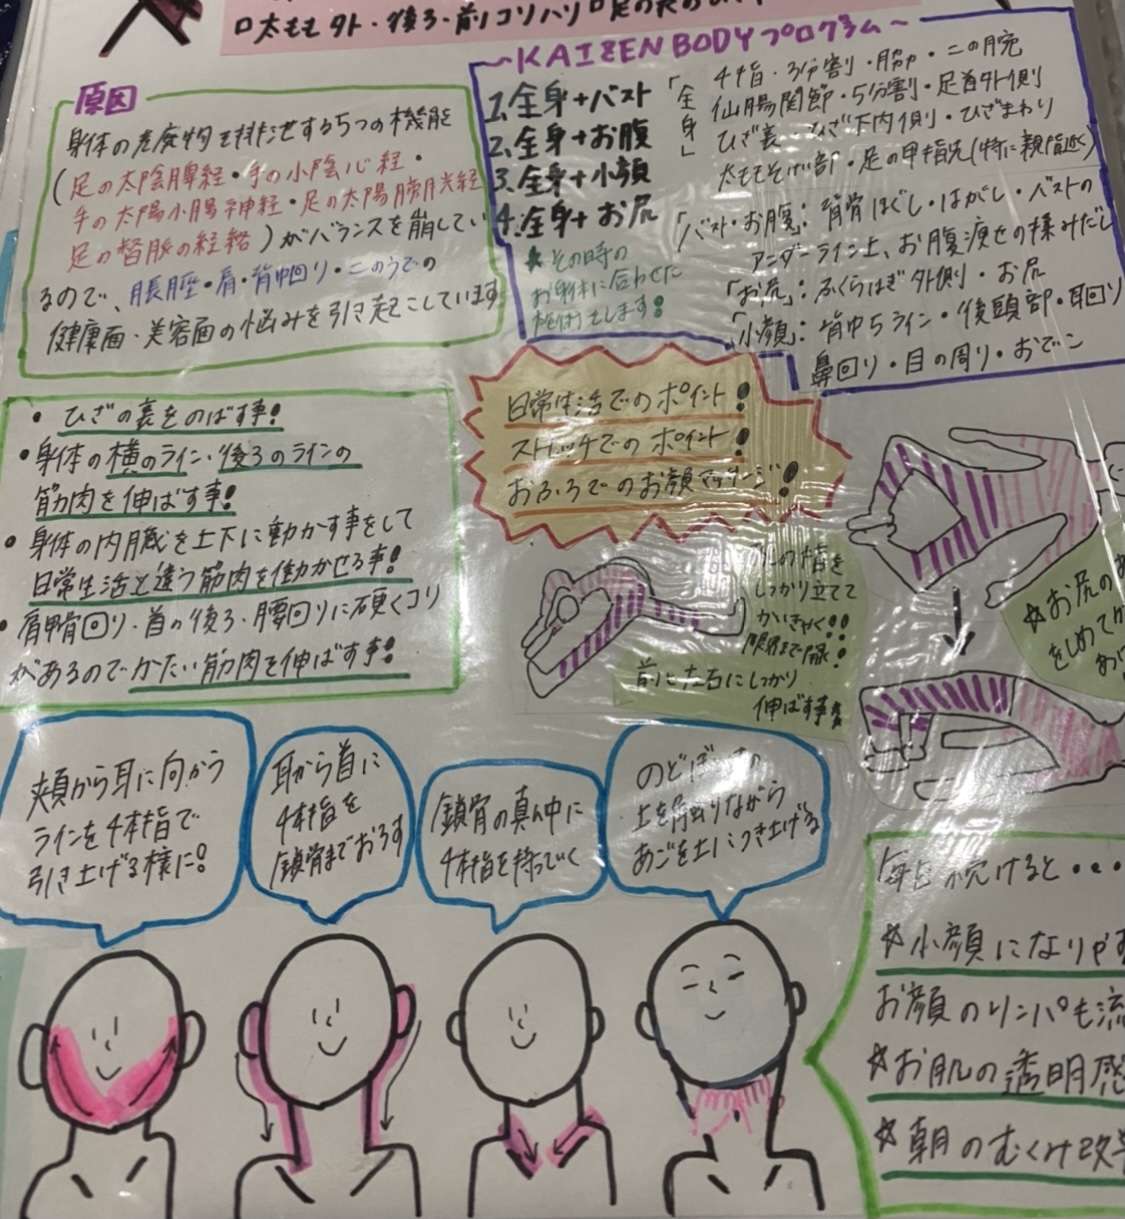 口太もも外・後ろ・前リコリハリ口足の裏の
原因
身体の老廃物を排泄する5つの機能
(足の太陰脾経・手の小陰心経・
手の太陽小腸神経・足の太陽膀胱経
足の督脈の経絡)がバランスを崩してい
るので、
肩・背中回り・二のうでの
健康面・美容面の悩みを引き起こしています
~KAIZEN BODYプログラム~
1.全身+バスト
2.全身+お腹
3.全身+小顔
4.全身+お尻
★その時の
お身体に合わせた
施術をします!
「全身」
4指・3分割・脇・二の腕
仙腸関節・5分割・足首外側
ひざ裏・ひざ下内側・ひざまわり
太ももそけい部・足の甲指先(特に親指近く)
「バスト・お腹」:背骨ほぐし・はがし・バストの
アンダーライン上、お腹痩せの揉みだし
「お尻」:ふくらはぎ外側・お尻
「小顔」:背中5ライン・後頭部・耳回り
鼻回り・目の周り・おでこ
・ひざの裏をのばす事!
・身体の横のライン・後ろのラインの
筋肉を伸ばす事!
・身体の内臓を上下に動かす事をして
日常生活と違う筋肉を働かせる事!
・肩甲骨回り・首の後ろ・腰回りに硬くコリ
があるのでかたい筋肉を伸ばす事!
日常生活でのポイント!
ストレッチでのポイント!
おふろでのお顔マッサージ!
の指を
しっかり立てて
かいきゃく!!
限界まで開く!
前に左右にしっかり
伸ばす事
☆お尻の
をしめて
頬から耳に向かう
ラインを4本指で
引き上げる様に!
耳から首に
4本指を
鎖骨までおろす
鎖骨の真ん中に
4本指を持っていく
のどぼ
上を触りながら
あごを上につき上げる
毎日続けると・・・
☆小顔になりやす
お顔のリンパも流
☆お肌の透明感
☆朝のむくみ改善